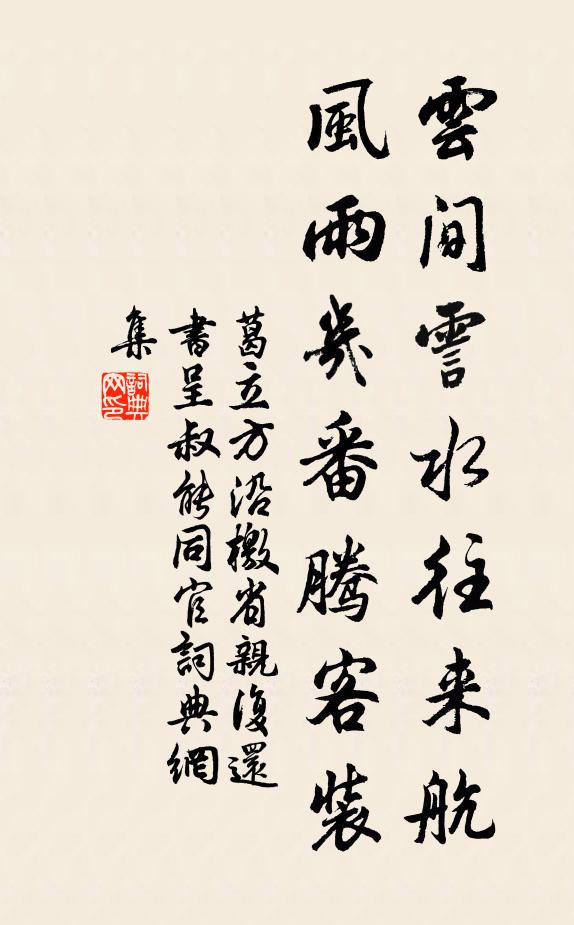 雲間霅水往来航
風雨幾番騰客裝
葛立方沿檄省親復還
書呈叔能同官詞典網
集
詞典网印